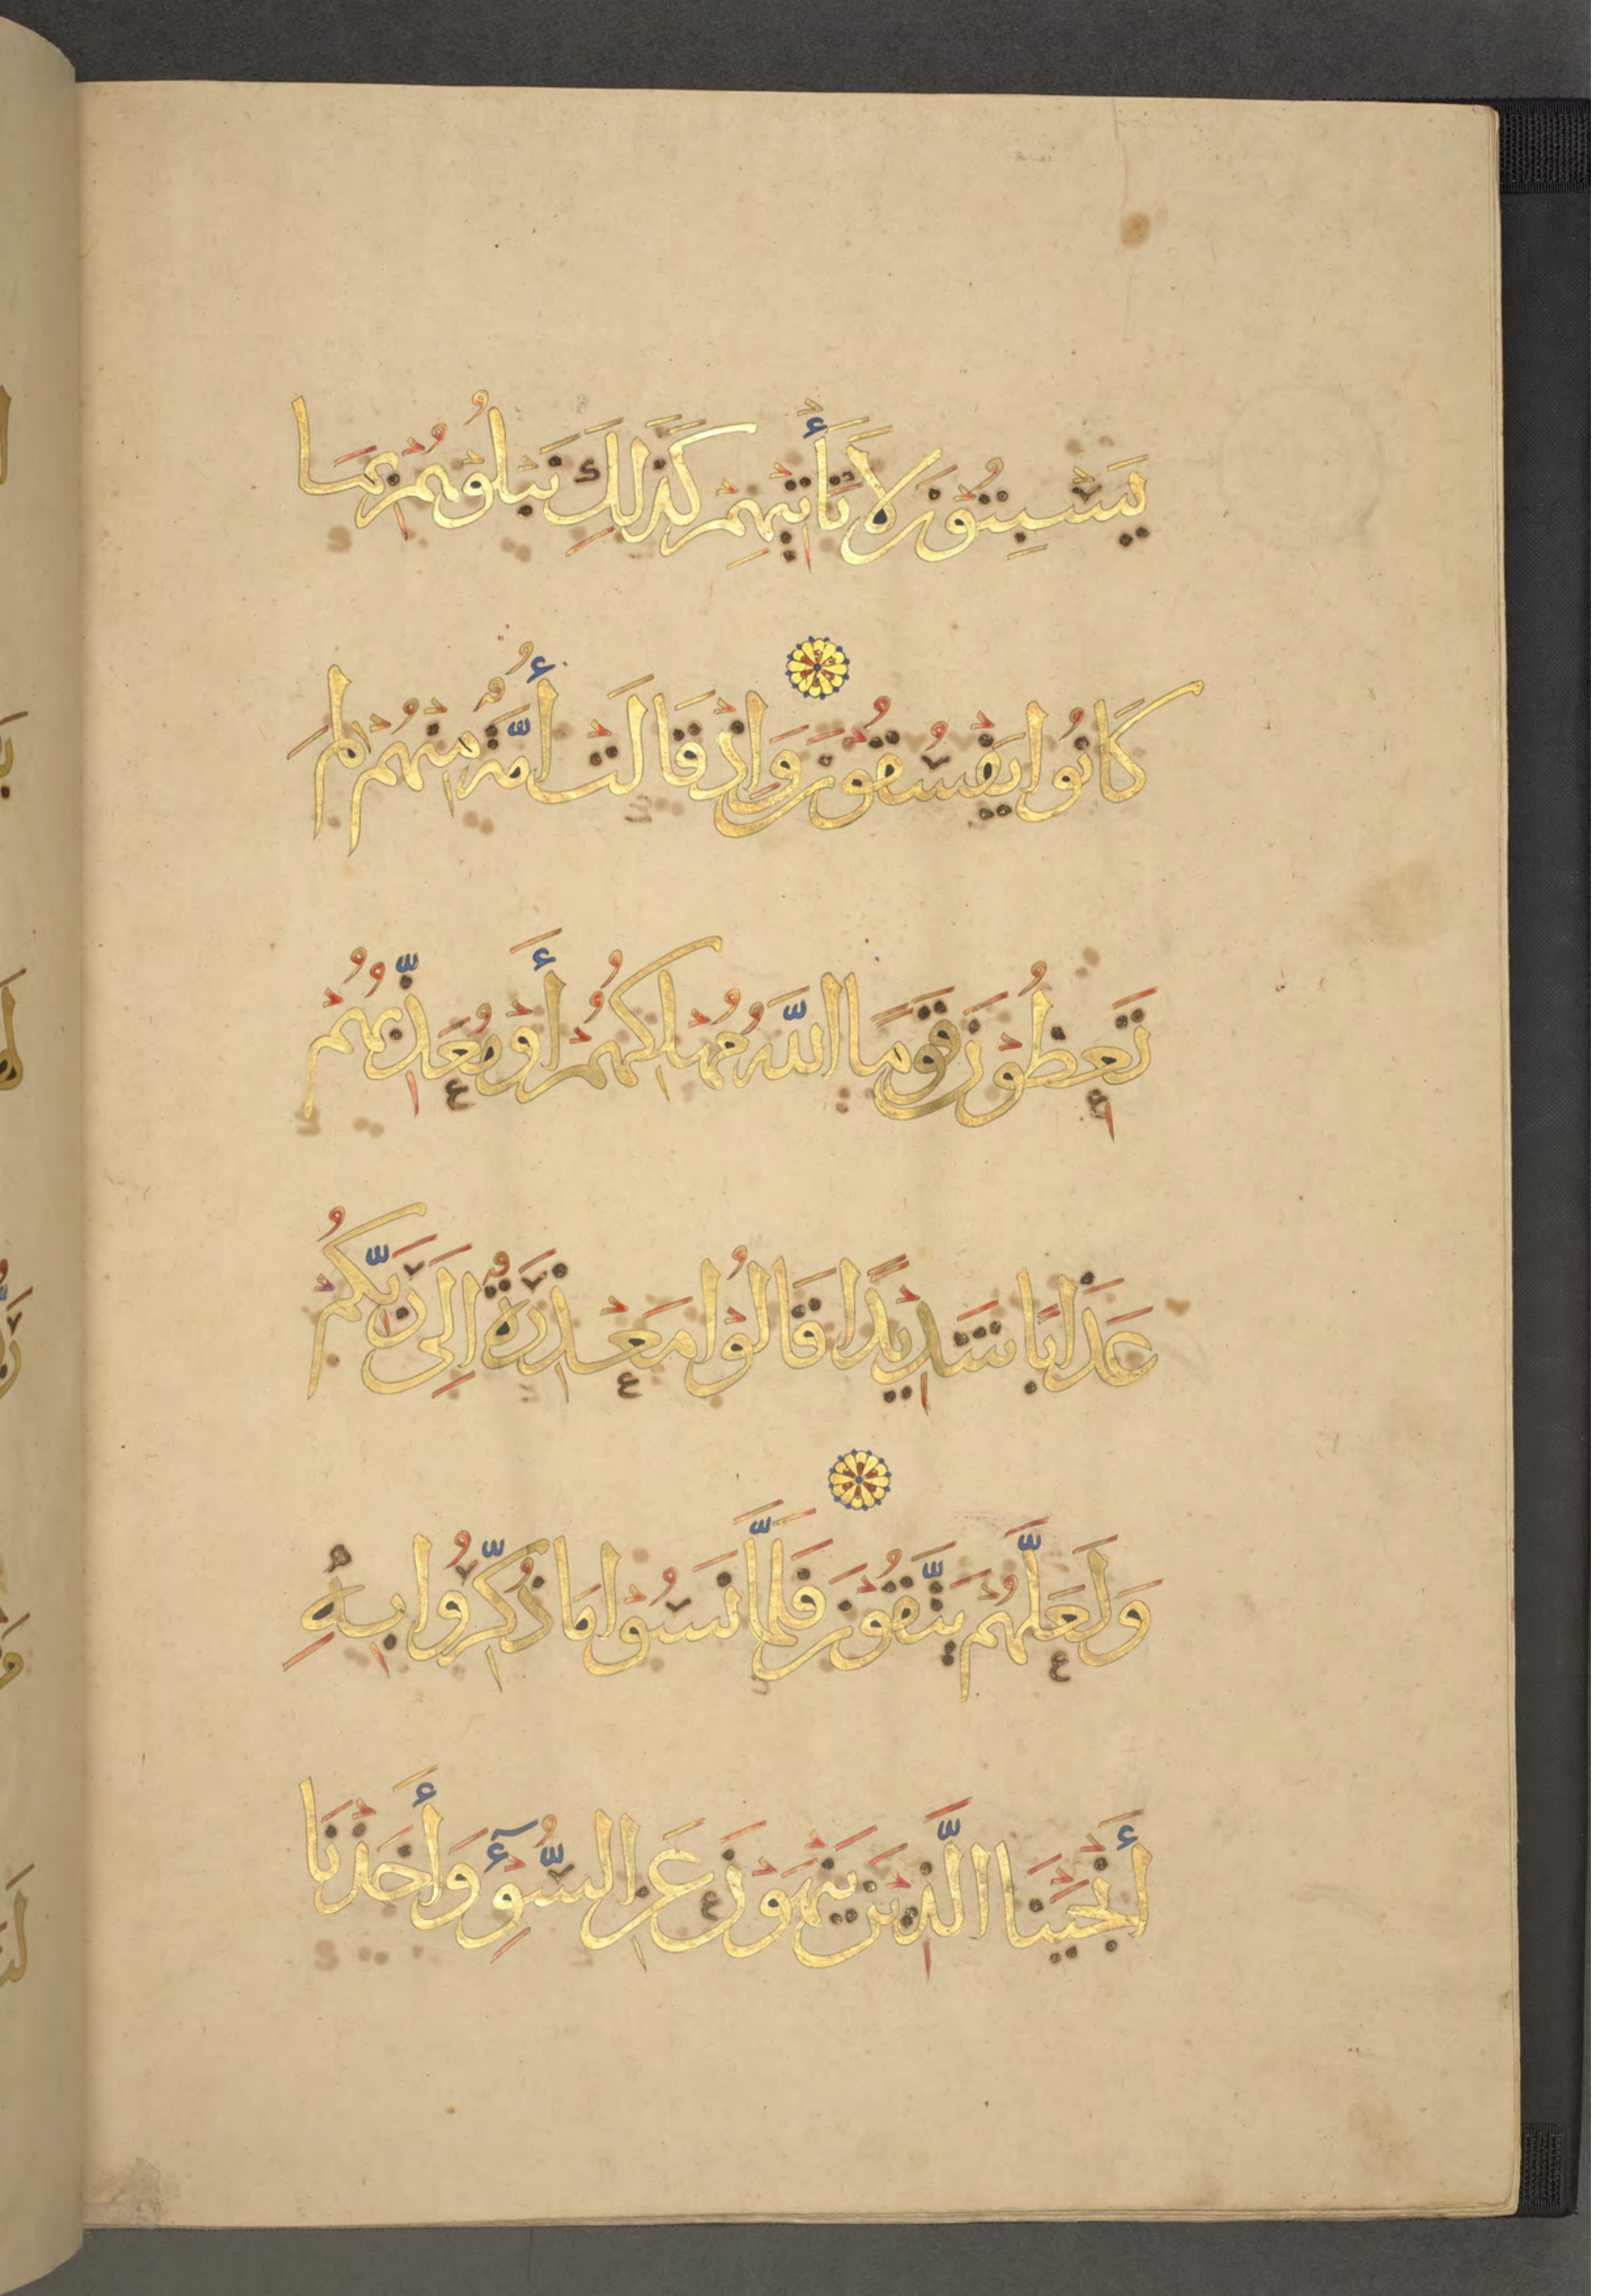 يَسْبِتُونَ لَا تَأْتِيهِمْ كَذَلِكَ نَبْلُوهُمْ بِمَا
كَانُوا يَفْسُقُونَ وَإِذْ قَالَتْ أُمَّةٌ مِنْهُمْ لِمَ
تَعِظُونَ قَوْمًا اللَّهُ مُهْلِكُهُمْ أَوْ مُعَذِّبُهُمْ
عَذَابًا شَدِيدًا قَالُوا مَعْذِرَةٌ إِلَى رَبِّكُمْ
وَلَعَلَّهُمْ يَتَّقُونَ فَلَمَّا نَسُوا مَا ذُكِّرُوا بِهِ
أَنْجَيْنَا الَّذِينَ يَنْهَوْنَ عَنِ السُّوءِ وَأَخَذْنَا